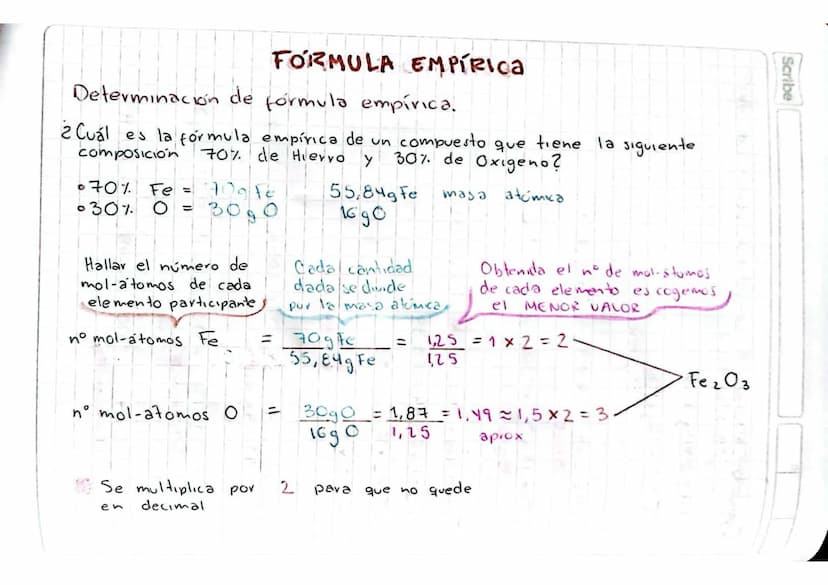 FÓRMULA EMPÍRICA
Determinación de fórmula empírica.
¿Cuál es la fórmula empírica de un compuesto que tiene la siguiente
composición 70% de Hierro y 30% de Oxigeno?
• 70% Fe = 70g Fe 55,84g Fe masa atómica
• 30% O = 30g O 16 g O
Hallar el número de
mol-átomos de cada
elemento participante
Cada cantidad
dada se divide
por la masa atómica
Obtenida el n° de mol-átomos
de cada elemento escogemos
el MENOR VALOR
n° mol-átomos Fe = 70g Fe / 55,84g Fe = 1,25 / 1,25 = 1 x 2 = 2
Fe2O3
n° mol-atomos O = 30g O / 16g O = 1,87 / 1,25 = 1,49 ≈ 1,5 x 2 = 3
aprox
Se multiplica por 2 para que no quede
en decimal
Scribe